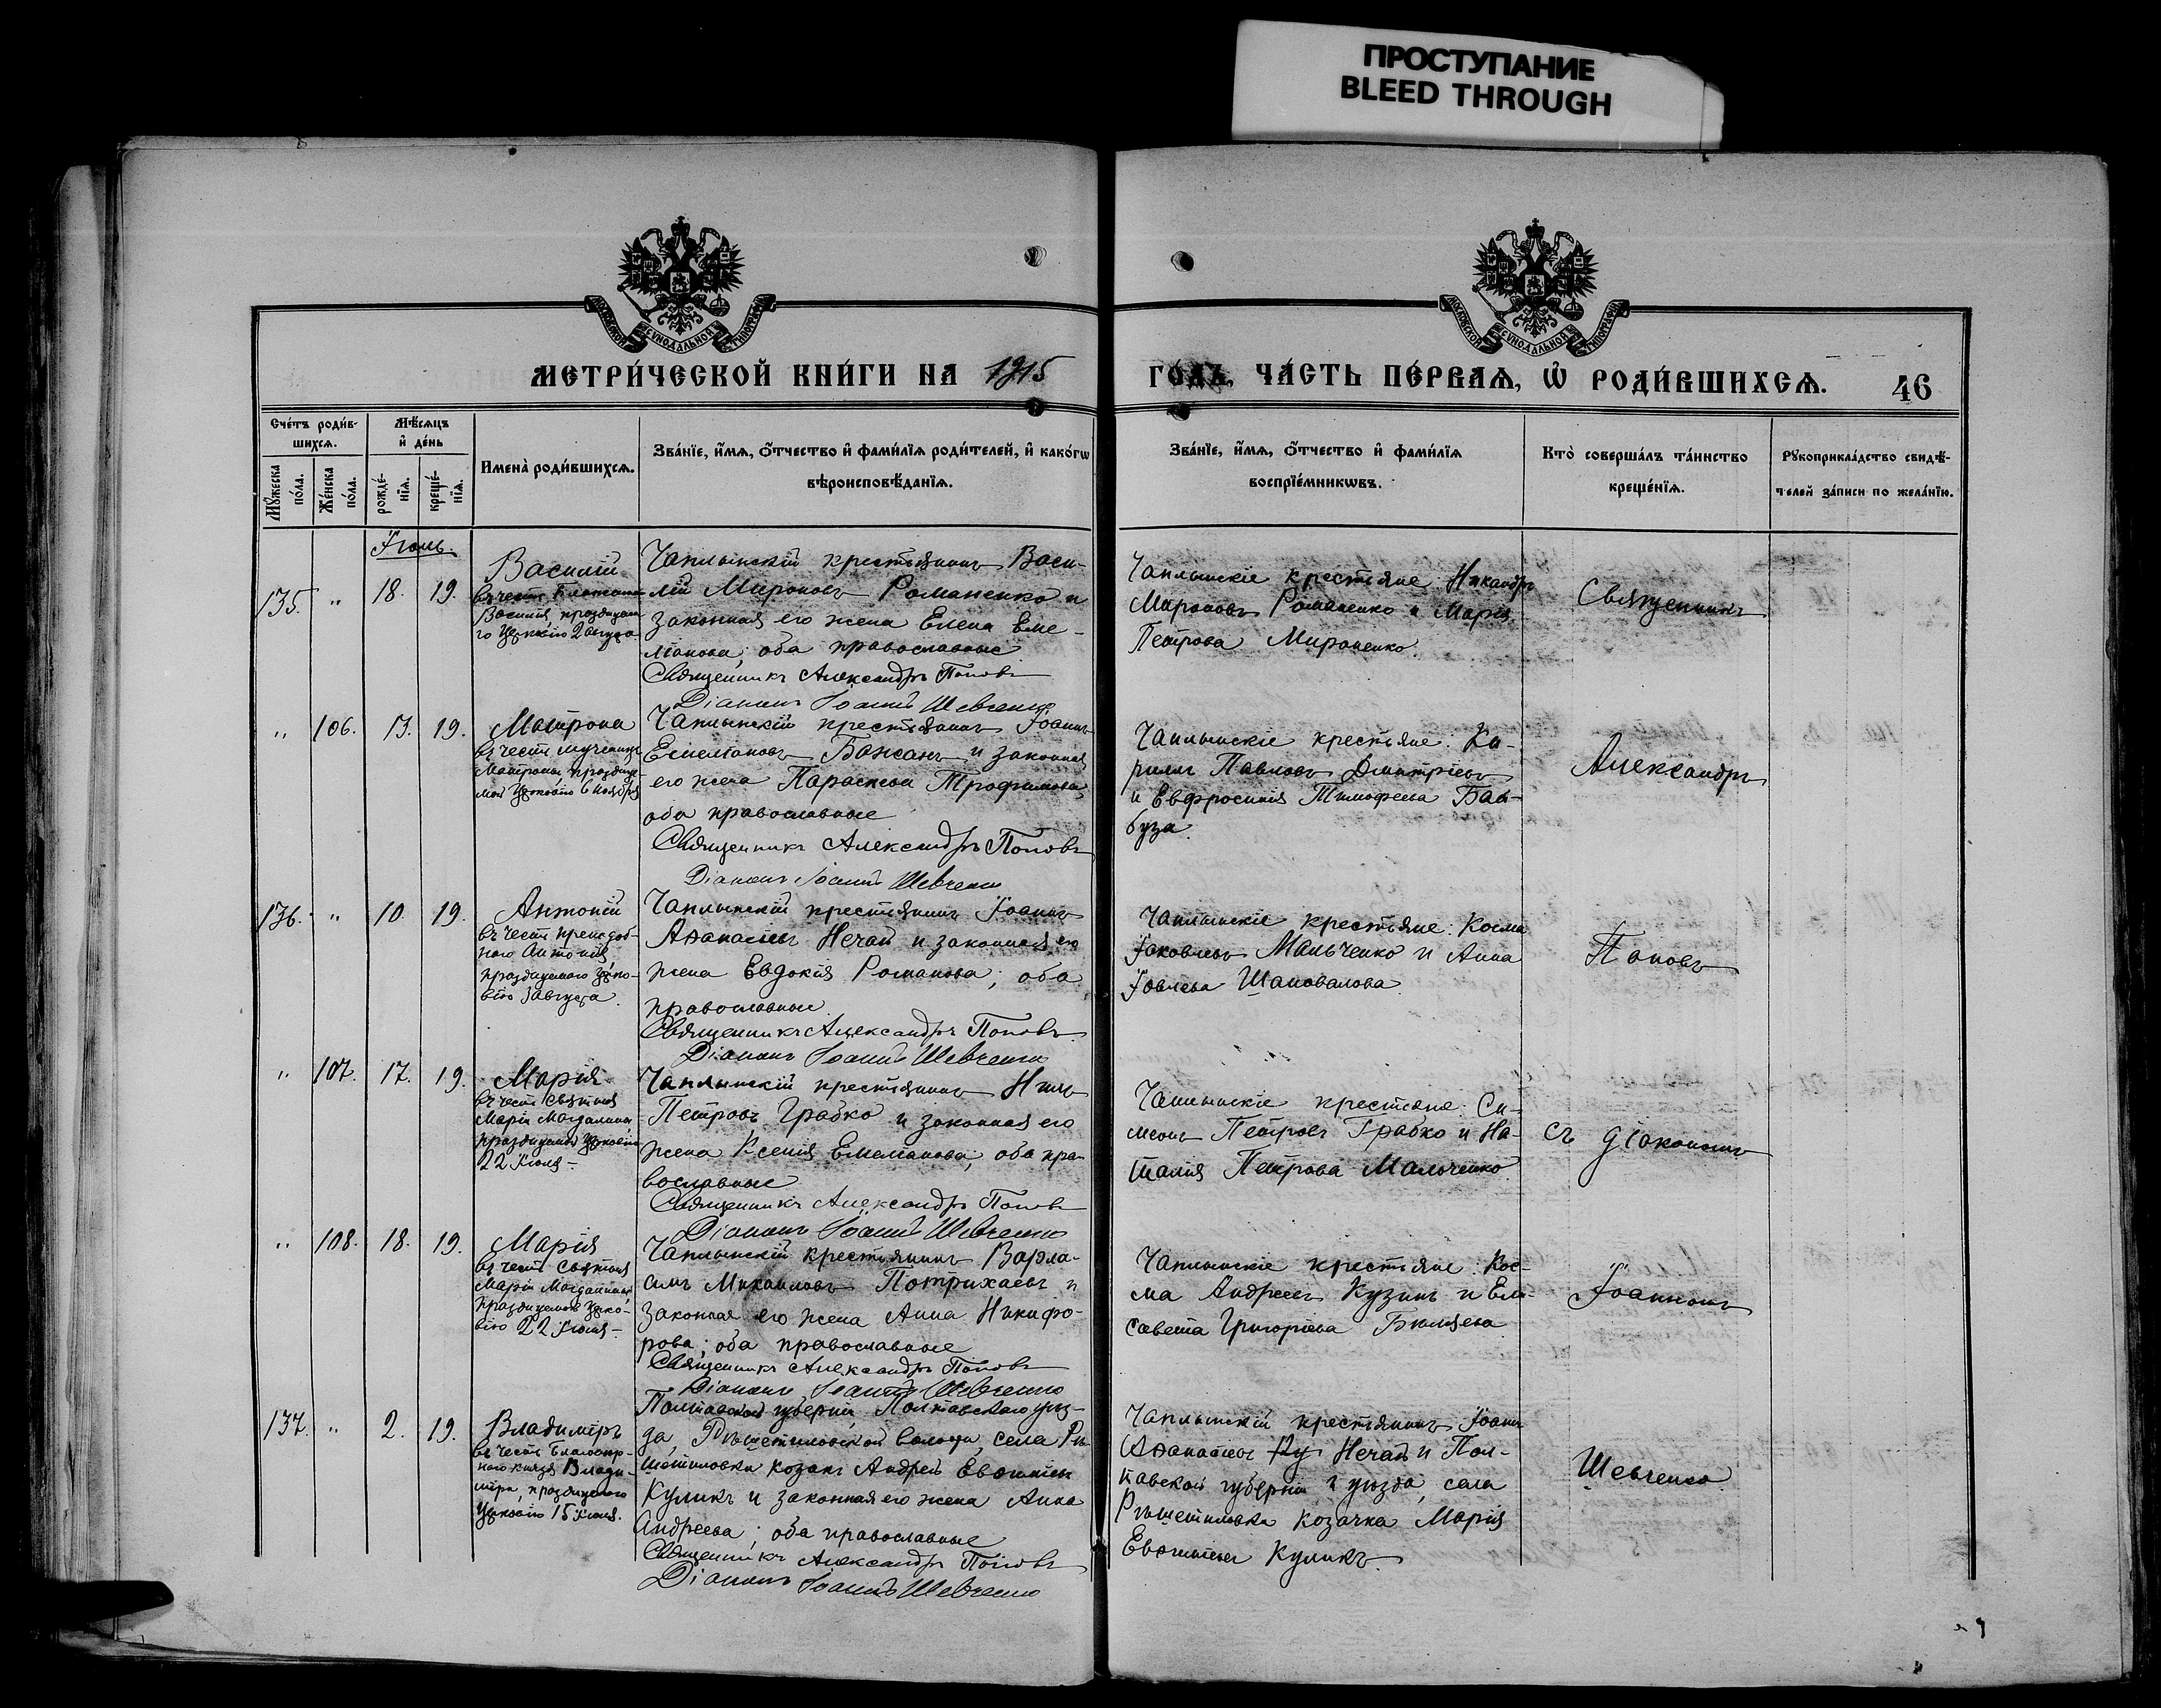 ПРОСТУПАНИЕ
BLEED THROUGH
МОСКОВСКОЙ СѴНОДАЛЬНОЙ ТИПОГРАФІИ
МОСКОВСКОЙ СѴНОДАЛЬНОЙ ТИПОГРАФІИ
МЕТРИ́ЧЕСКОЙ КНИ́ГИ НА 1915
ГО́ДЪ, ЧА́СТЬ ПЕ́РВАѦ, Ѡ҆ РОДИ́ВШИХСѦ.
46
Сче́тъ роди́в-
шихсѧ.
Мꙋ́жеска
по́ла.
Же́нска
по́ла.
Мѣ́сѧцъ
и҆ де́нь
рожде́-
нїѧ.
креще́-
нїѧ.
Имена̀ роди́вшихсѧ.
Зва́нїе, и҆́мѧ, ѻ҆́тчество и҆ фами́лїѧ роди́телей, и҆ како́гѡ
вѣроисповѣ́данїѧ.
Зва́нїе, и҆́мѧ, ѻ҆́тчество и҆ фами́лїѧ
воспрїе́мникѡвъ.
Кто̀ соверша́лъ та́инство
креще́нїѧ.
Рꙋкоприкла́дство свидѣ́-
телей за́писи по жела́нїю.
Іюль.
135. " 18. 19.
Василій
въ честь Блаженна
Василія, праздцуем
го Церковію 2 августа
Чаплынскій крестьянинъ Васи-
лій Мироновъ Романенко и
законная его жена Елена Еме-
ліанова; оба православные
Священникъ Александръ Поповъ
Діаконъ Іоаннъ Шевченко
Чаплынскіе крестьяне: Никандръ
Мироновъ Романенко и Марія
Петрова Мироненко.
Священникъ
" 106. 13. 19.
Матрона
въ честь мученицы
Матроны, праздцуе-
мой Церковію 6 ноября
Чаплынскій крестьянинъ Іоаннъ
Емеліановъ Бажанъ и законная
его жена Параскева Трофимова;
оба православные
Священникъ Александръ Поповъ
Діаконъ Іоаннъ Шевченко
Чаплынскіе крестьяне: Ки-
риллъ Павловъ Дмитріевъ
и Евфросинія Тимофеева Бай-
буза.
Александръ
136. " 10. 19.
Антоній
въ честь преподоб-
наго Антонія,
праздцуемаго Церко-
вію 3 августа.
Чаплынскій крестьянинъ Іоаннъ
Аѳанасіевъ Нечай и законная его
жена Евдокія Романова; оба
православные
Священникъ Александръ Поповъ
Діаконъ Іоаннъ Шевченко
Чаплынскіе крестьяне: Косма
Іаковлевъ Мальченко и Анна
Іовлева Шаповалова.
Поповъ
" 107. 17. 19.
Марія
въ честь святыя
Маріи Магдалины,
праздцуемой Церковію
22 Іюля –
Чаплынскій крестьянинъ Нилъ
Петровъ Грабко и законная его
жена Ксенія Емеліанова; оба пра-
вославные
Священникъ Александръ Поповъ
Діаконъ Іоаннъ Шевченко
Чаплынскіе крестьяне: Си-
меонъ Петровъ Грабко и На-
талія Петрова Мальченко.
съ діакономъ
" 108. 18. 19.
Марія
въ честь Святыя
Маріи Магдалины,
праздцуемой Церко-
вію 22 Іюля –
Чаплынскій крестьянинъ Варла-
амъ Михаиловъ Потрихаевъ и
законная его жена Анна Никифо-
рова; оба православные
Священникъ Александръ Поповъ
Діаконъ Іоаннъ Шевченко
Чаплынскіе крестьяне: Кос-
ма Андреевъ Кузинъ и Ели-
савета Григоріева Биляева.
Іоанномъ
137. " 2. 19.
Владиміръ
въ честь Благовѣр-
наго князя Влади-
міра, праздцуемаго
Церковію 15 Іюля.
Полтавской губерніи, Полтавскаго уѣз-
да, Рѣшетиловской волости, села Рѣ-
шетиловки козакъ Андрей Евѳиміевъ
Куликъ и законная его жена Анна
Андреева; оба православные
Священникъ Александръ Поповъ
Діаконъ Іоаннъ Шевченко
Чаплынскій крестьянинъ Іоаннъ
Аѳанасіевъ Ку Нечай и Пол-
тавской губерніи и уѣзда, села
Рѣшетиловка козачка Марія
Евѳиміева Куликъ.
Шевченко.